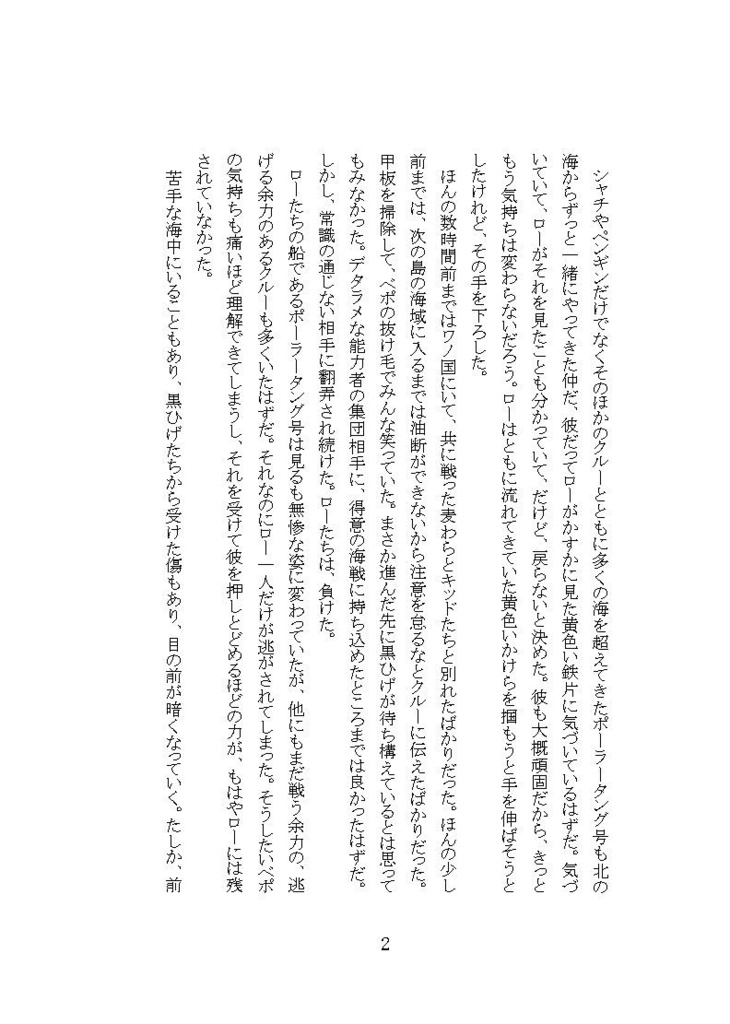 シャチやペンギンだけでなくそのほかのクルーとともに多くの海を超えてきたポーラータング号も北の
海からずっと一緒にやってきた仲だ、彼だってローがかすかに見た黄色い鉄片に気づいているはずだ。気づ
いていて、ローがそれを見たことも分かっていて、だけど、戻らないと決めた。彼も大概頑固だから、きっと
もう気持ちは変わらないだろう。ローはともに流れてきていた黄色いかけらを掴もうと手を伸ばそうと
したけれど、その手を下ろした。
　ほんの数時間前まではワノ国にいて、共に戦った麦わらとキッドたちと別れたばかりだった。ほんの少し
前までは、次の島の海域に入るまでは油断ができないから注意を怠るなとクルーに伝えたばかりだった。
甲板を掃除して、ベポの抜け毛でみんな笑っていた。まさか進んだ先に黒ひげが待ち構えているとは思って
もみなかった。デタラメな能力者の集団相手に、得意の海戦に持ち込めたところまでは良かったはずだ。
しかし、常識の通じない相手に翻弄され続けた。ローたちは、負けた。
　ローたちの船であるポーラータング号は見るも無惨な姿に変わっていたが、他にもまだ戦う余力の、逃
げる余力のあるクルーも多くいたはずだ。それなのにロー一人だけが逃がされてしまった。そうしたいベポ
の気持ちも痛いほど理解できてしまうし、それを受けて彼を押しとどめるほどの力が、もはやローには残
されていなかった。
　苦手な海中にいることもあり、黒ひげたちから受けた傷もあり、目の前が暗くなっていく。たしか、前
2